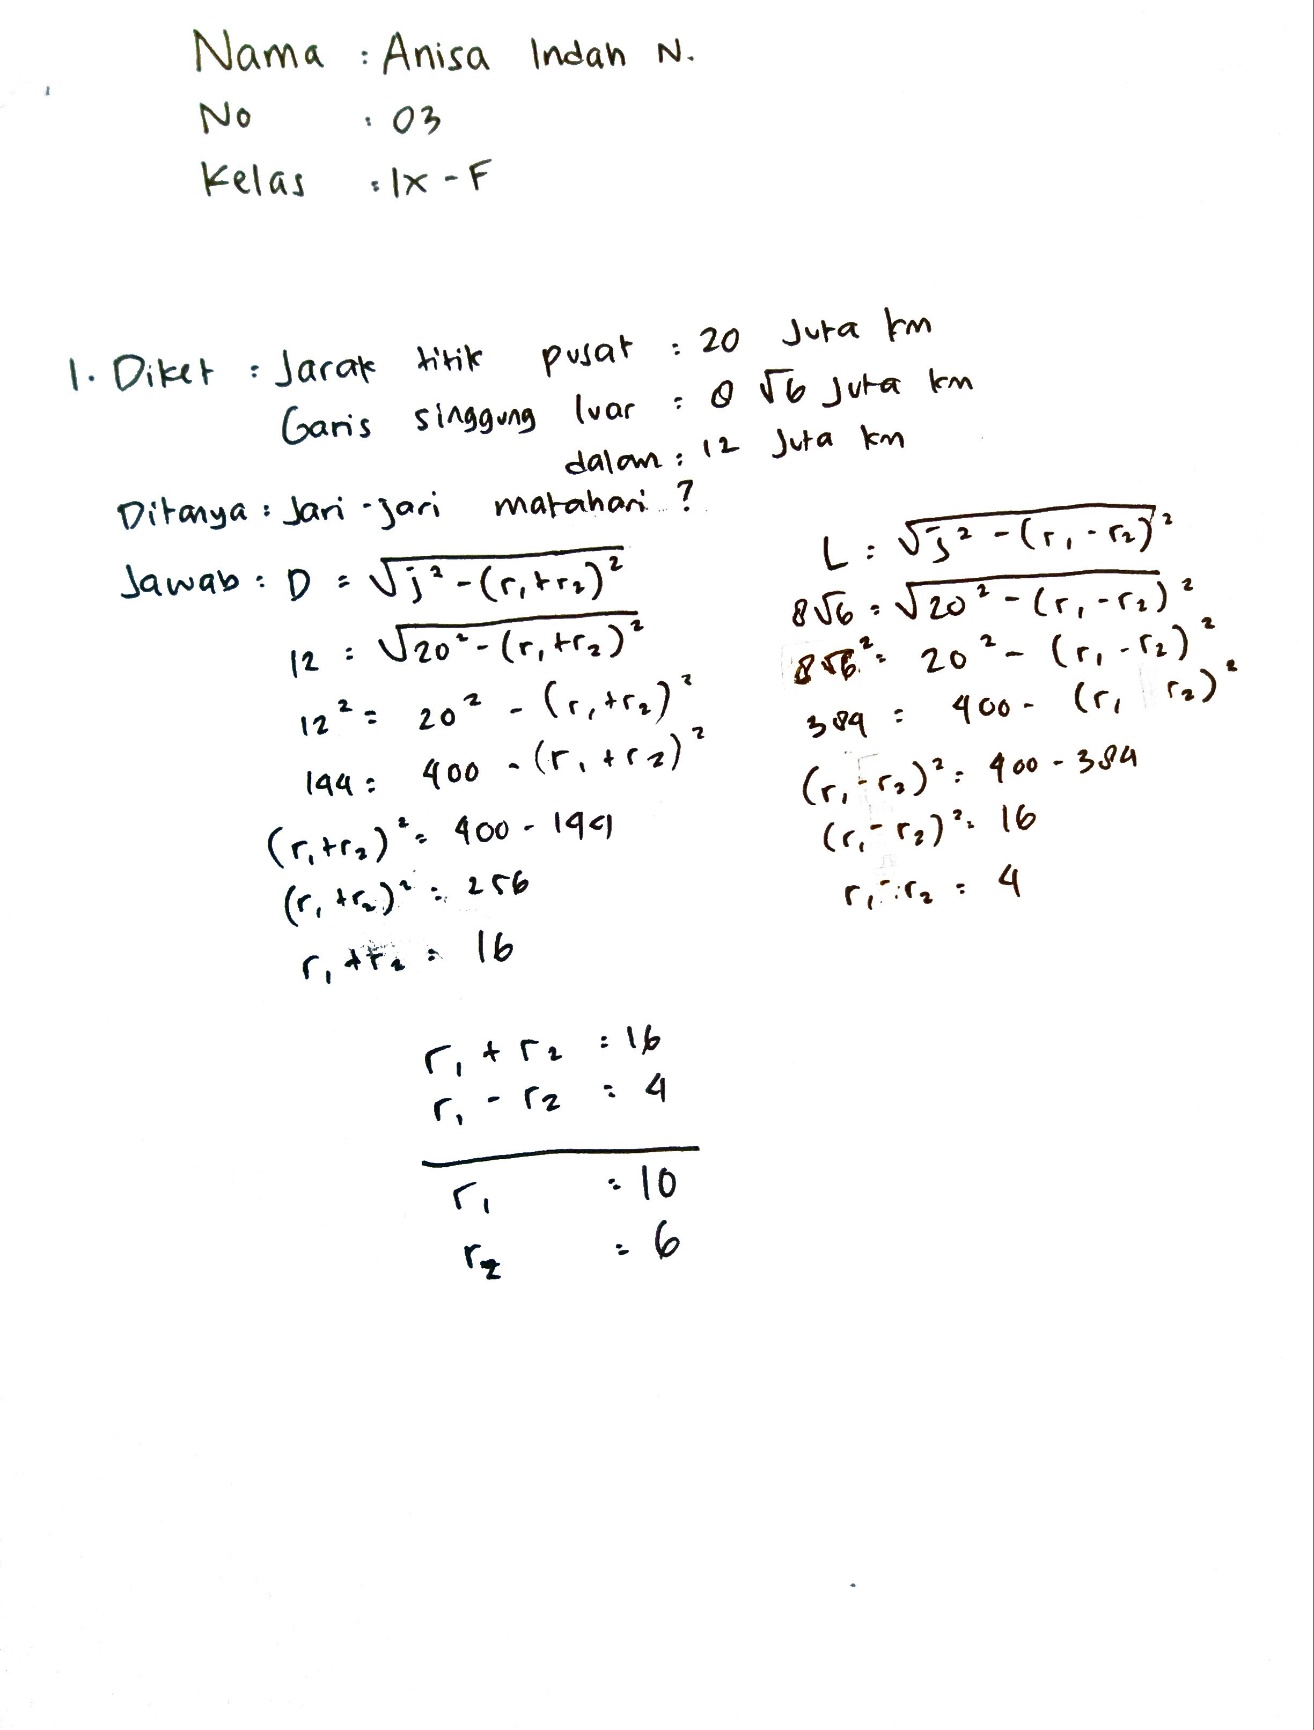 Nama : Anisa Indah N.
No : 03
Kelas : IX - F
1. Diket : Jarak titik pusat : 20 Juta km
Garis singgung luar : 8 √6 Juta km
dalam : 12 Juta km
Ditanya : Jari - jari matahari ?
Jawab : D = √j² - (r₁+r₂)²
12 = √20² - (r₁+r₂)²
12² = 20² - (r₁+r₂)²
144 = 400 - (r₁+r₂)²
(r₁+r₂)² = 400 - 144
(r₁+r₂)² = 256
r₁+r₂ = 16
L = √j² - (r₁-r₂)²
8√6 = √20² - (r₁-r₂)²
8√6² = 20² - (r₁-r₂)²
384 = 400 - (r₁ r₂)²
(r₁-r₂)² = 400 - 384
(r₁-r₂)² = 16
r₁-r₂ = 4
r₁ + r₂ = 16
r₁ - r₂ = 4
r₁ = 10
r₂ = 6